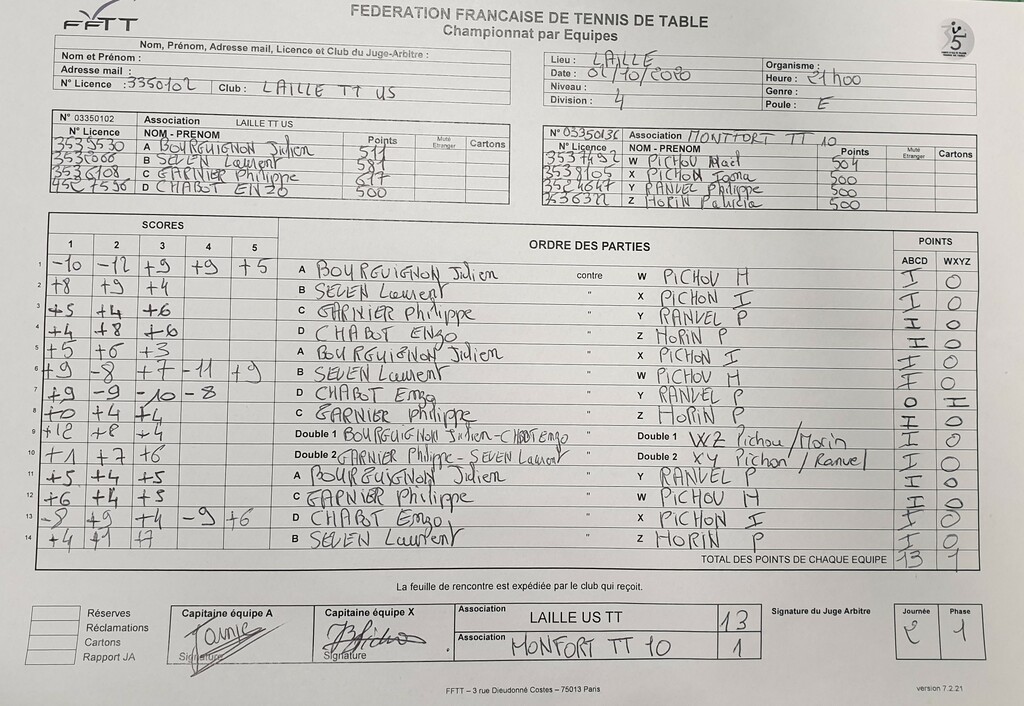 FFTT
FEDERATION FRANCAISE DE TENNIS DE TABLE
Championnat par Equipes
Nom, Prénom, Adresse mail, Licence et Club du Juge-Arbitre :
Nom et Prénom :
Adresse mail :
N° Licence : 3350102 Club : LAILLE TT US
Lieu : LAILLE Organisme :
Date : 02/10/2020 Heure : 21h00
Niveau : Genre :
Division : 4 Poule : E
N° 03350102 Association LAILLE TT US
N° Licence NOM - PRENOM Points Muté Etranger Cartons
3539530 A BOURGUIGNON Julien 511
B SEVEN Laurent 581
3536108 C GARNIER Philippe 617
D CHABOT ENZO 500
N° 03350136 Association MONTFORT TT 10
N° Licence NOM - PRENOM Points Muté Etranger Cartons
3537492 W PICHOU Mael 504
3538105 X PICHON 500
3524647 Y RANVEL Philippe 500
Z MORIN Patricia 500
SCORES ORDRE DES PARTIES POINTS
1 2 3 4 5 ABCD WXYZ
1 -10 -12 +9 +9 +5 A BOURGUIGNON Julien contre W PICHOU M I 0
2 +8 +9 +4 B SEVEN Laurent " X PICHON I I 0
3 +5 +4 +6 C GARNIER Philippe " Y RANVEL P I 0
4 +4 +8 +6 D CHABOT ENZO " Z MORIN P I 0
5 +5 +6 +3 A BOURGUIGNON Julien " X PICHON I I 0
6 +9 -8 +7 -11 +9 B SEVEN Laurent " W PICHOU M I 0
7 +9 -9 -10 -8 D CHABOT Enzo " Y RANVEL P 0 I
8 +0 +4 +4 C GARNIER Philippe " Z MORIN P I 0
9 +12 +8 +4 Double 1 BOURGUIGNON Julien-CHABOT Enzo " Double 1 WZ Pichou/Morin I 0
10 +1 +7 +6 Double 2 GARNIER Philippe - SEVEN Laurent " Double 2 XY Pichon/Ranvel I 0
11 +5 +4 +5 A BOURGUIGNON Julien " Y RANVEL P I 0
12 +6 +4 +5 C GARNIER Philippe " W PICHOU M I 0
13 -8 +9 +4 -9 +6 D CHABOT Enzo " X PICHON I I 0
14 +4 +1 +7 B SEVEN Laurent " Z MORIN P I 0
TOTAL DES POINTS DE CHAQUE EQUIPE 13 1
La feuille de rencontre est expédiée par le club qui reçoit.
Réserves
Réclamations
Cartons
Rapport JA
Capitaine équipe A
Signature
Capitaine équipe X
Signature
Association LAILLE US TT 13
Association MONFORT TT 10 1
Signature du Juge Arbitre
Journée Phase
2 1
FFTT – 3 rue Dieudonné Costes – 75013 Paris
version 7.2.21